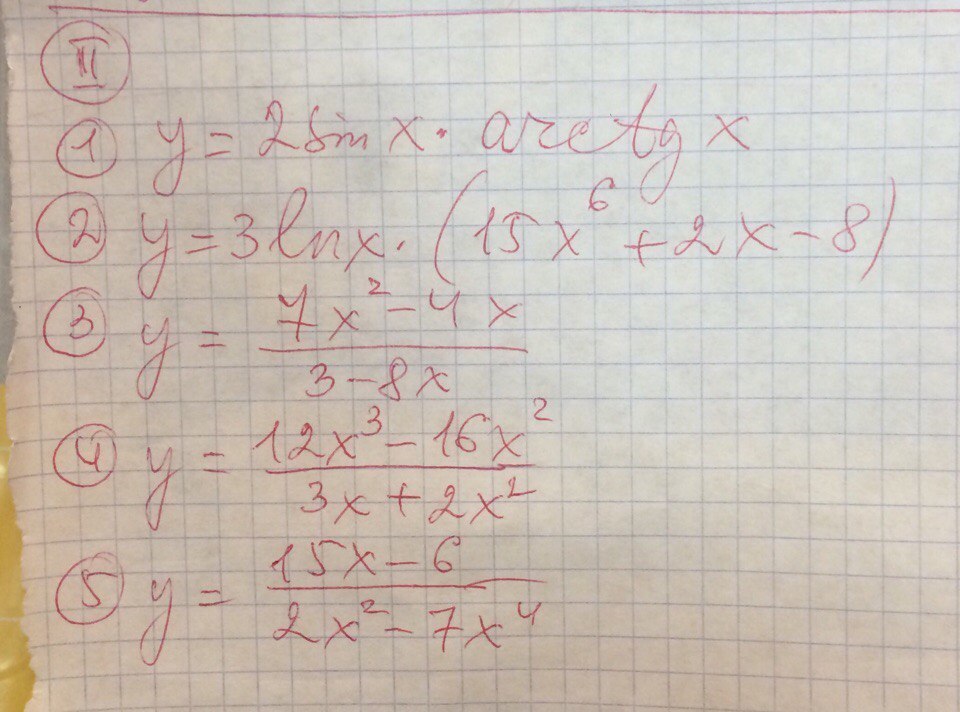 II
① y = 2 sin x · arctg x
② y = 3 ln x · (15x⁶ + 2x - 8)
③ y = (7x² - 4x) / (3 - 8x)
④ y = (12x³ - 16x²) / (3x + 2x²)
⑤ y = (15x - 6) / (2x² - 7x⁴)